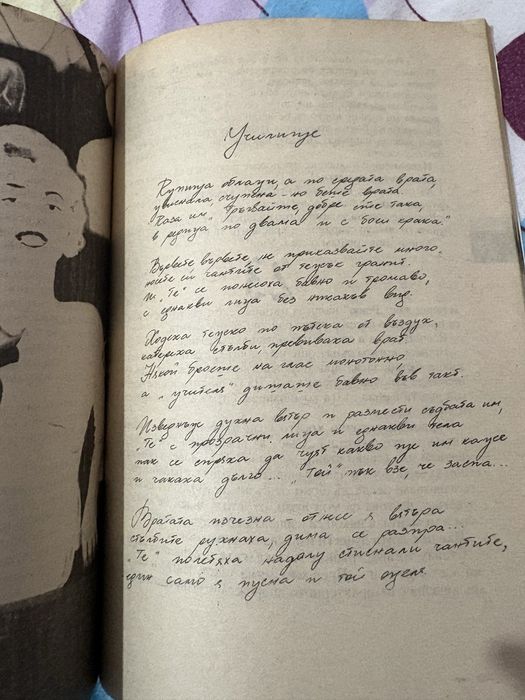 Училище
Купища облаци, а по средата врата,
увиснала, счупена - но беше врата.
Каза им: "Тръгвайте, добре сте така,
в редица по двама и с боси крака."
Вървете, вървете, не приказвайте много.
носите си чантите от тежък гранит.
И "Те" се понесоха бавно и тромаво,
с еднакви лица без никакъв вид.
Ходеха тежко по пътека от въздух,
катереха стълби, превиваха врат.
Някой броеше на глас монотонно,
а "учителя" дишаше бавно във такт.
Изведнъж духна вятър и разчисти съдбата им,
"Те" с прозрачни лица и еднакви тела
пак се спряха да чуят какво ще им каже
и чакаха дълго... "Той" пък взе, че заспа...
Вратата изчезна - отнесе я вятъра
стълбите рухнаха, дима се разпра...
"Те" полетяха надолу стиснали чантите,
един само я пусна и той оцеля